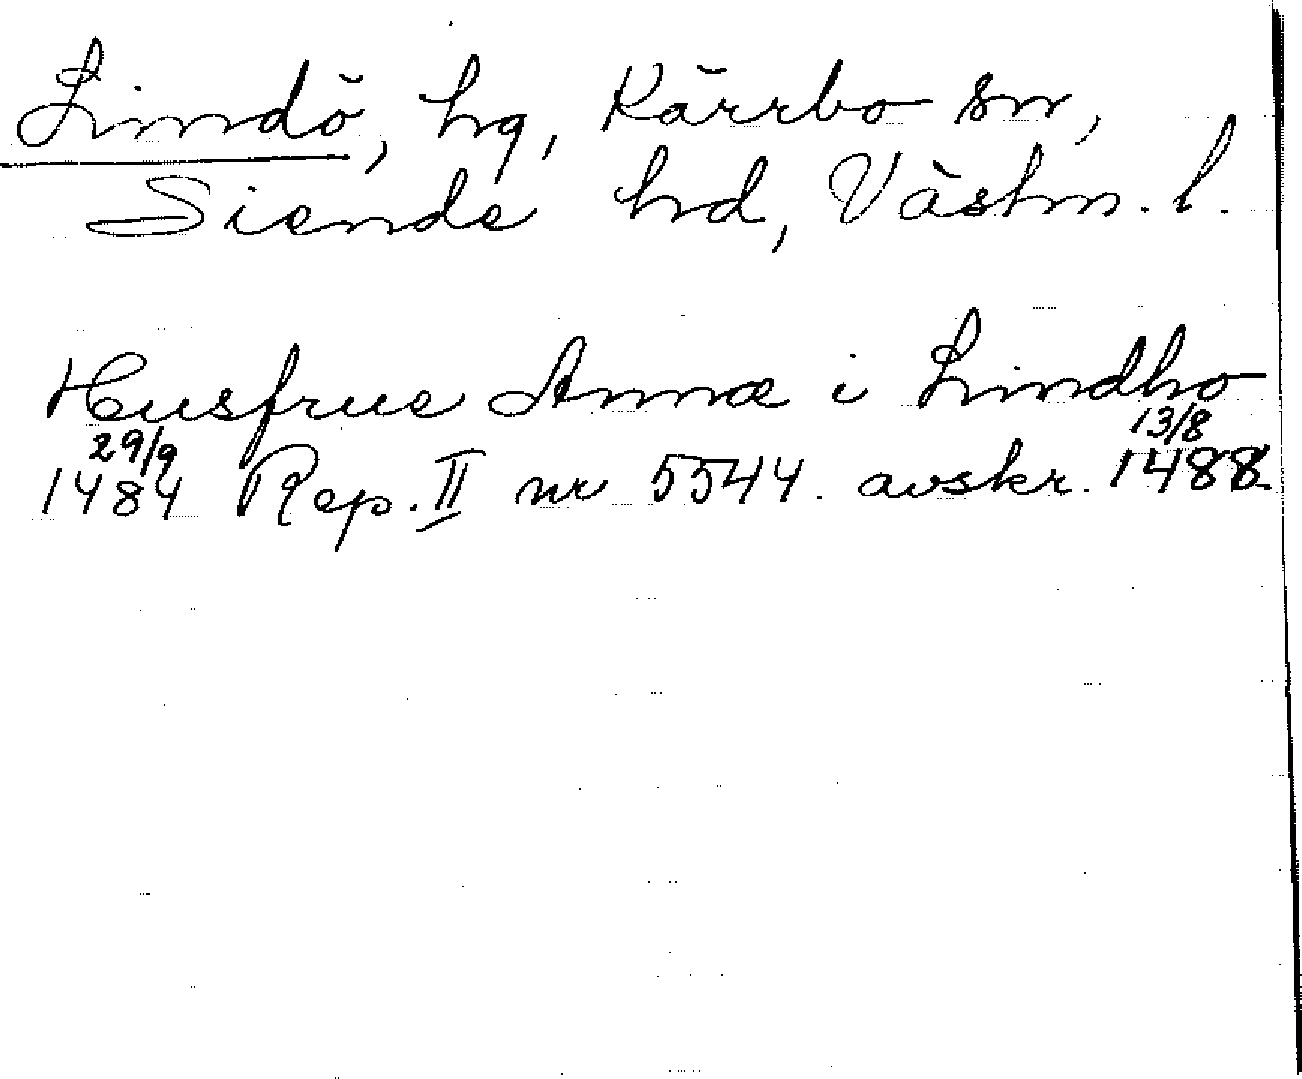 Lindö, hg, Kärrbo sn,
Siende hd, Västm. l.
Husfrue Annæ i Lindho
29/9 13/8
1484 Rep. II nr 5544. avskr. 1488